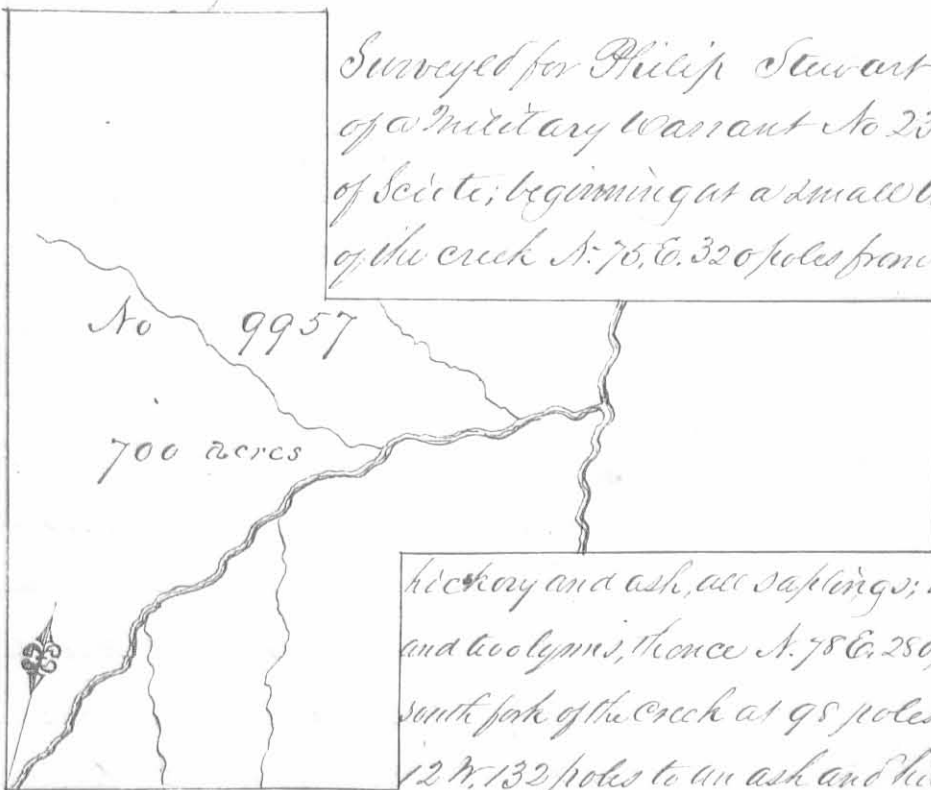 Surveyed for Philip Stewart
of a Military Warrant No 23
of Sciito; beginning at a small
of the creek N. 75, E. 320 poles from
No 9957
700 acres
hickory and ash, all saplings;
and two lynns, thence N. 78 E. 280
south fork of the creek at 98 poles
12 W. 132 poles to an ash and